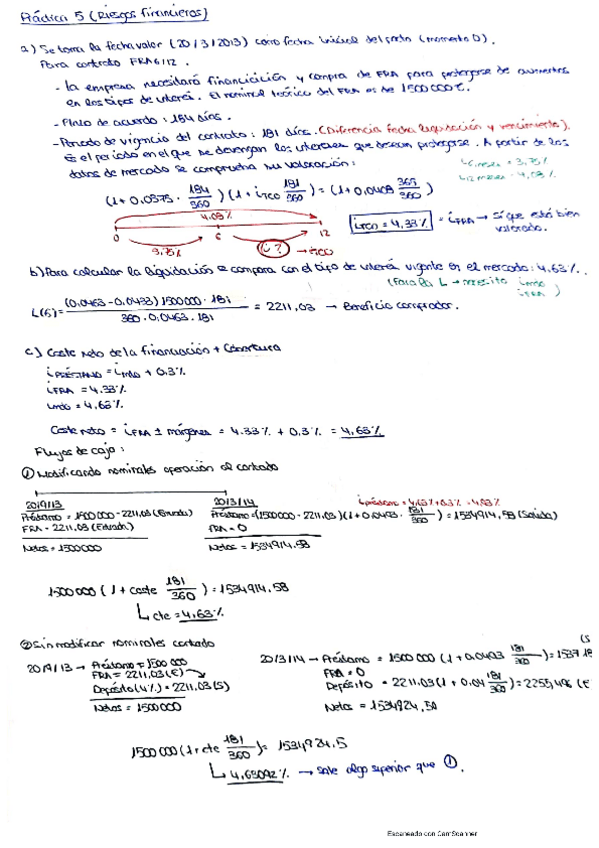 Práctica 5 (Riesgos Financieros)
a) Se toma la fecha valor (20/3/2013) como fecha inicial del pacto (momento 0).
Para contrato FRA 6/12.
- La empresa necesitará financiación y compra de FRA para protegerse de aumentos
en los tipos de interés. El nominal teórico del FRA es de 1500000€.
- Plazo de acuerdo: 184 días.
- Periodo de vigencia del contrato: 181 días. (Diferencia fecha liquidación y vencimiento).
Es el periodo en el que se devengan los intereses que desean protegerse. A partir de los
datos de mercado se comprueba su valoración:
i 6 meses = 3,75%
i 12 meses = 4,09%
(1 + 0,0375 · 184/360)(1 + iTCO 181/360) = (1 + 0,0409 365/360)
4,09%
0 6 12
3,75% i? → iTCO
iTCO = 4,33% = iFRA → Sí que está bien
valorado.
b) Para calcular la liquidación se compara con el tipo de interés vigente en el mercado: 4,63%.
(Para la L → necesito imdo
iFRA)
L(6) = (0,0463 - 0,0433) 1500000 · 181 / 360 + 0,0463 · 181 = 2211,03 → Beneficio comprador.
c) Coste neto de la financiación + Cobertura
iPRÉSTAMO = imdo + 0,3%
iFRA = 4,33%
imdo = 4,63%
Coste neto = iFRA ± márgenes = 4,33% + 0,3% = 4,63%
Flujos de caja:
① Modificando nominales operación al contado
20/9/13
Préstamo = 1500000 - 2211,03 (Entrada)
FRA = 2211,03 (Entrada)
Netos = 1500000
20/3/14
ipréstamo = 4,63% + 0,3% = 4,93%
Préstamo = (1500000 - 2211,03)(1 + 0,0493 · 181/360) = 1534914,58 (Salida)
FRA = 0
Netos = 1534914,58
1500000 (1 + coste 181/360) = 1534914,58
cte = 4,63%
② Sin modificar nominales contado
20/9/13 → Préstamo = 1500000
FRA = 2211,03 (E)
Depósito (4%) = 2211,03 (S)
Netos = 1500000
(S
20/3/14 → Préstamo = 1500000 (1 + 0,0493 181/360) = 153718
FRA = 0
Depósito = 2211,03 (1 + 0,04 181/360) = 2255,496 (E
Netos = 1534924,50
1500000 (1 + cte 181/360) = 1534924,5
4,63092% → Sale algo superior que ①.
Escaneado con CamScanner